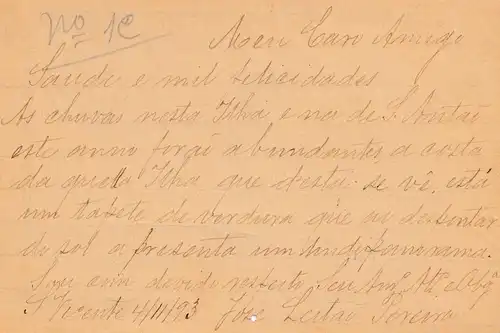 Nº 1C
Meu Caro Amigo
Saude e mil felicidades
As chuvas nesta Ilha e na de S. Antaõ
este anno foraõ abundantes a costa
da quella Ilha que desta se vê está
um tapete de verdura que ao despontar
do sol apresenta um lindo panorama.
Sou com devido respeito Seu Amgº Attº e Obgº
S Vicente 4/11/93 José Leitaõ Pereira